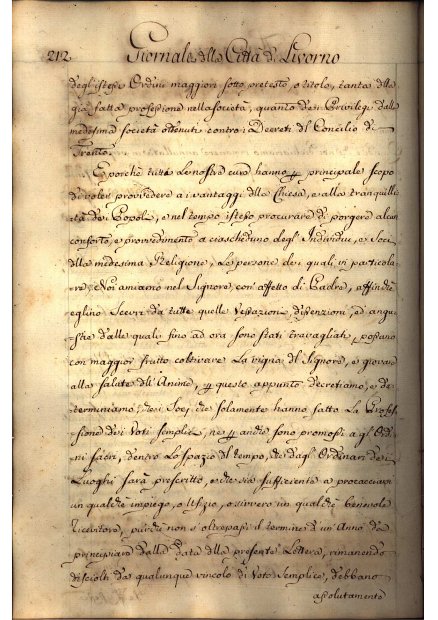 212 Giornale della Città di Livorno
degl'istessi Ordini maggiori sotto pretesto, o titolo, tanto della
già fatta professione nella società, quanto dei Privilegi della
medesima società ottenuti contro i Decreti del Concilio di
Trento.
E perchè tutte le nostre cure hanno per principale scopo
di voler provvedere ai vantaggi della Chiesa, e alla tranquilli
tà dei Popoli, e nel tempo istesso procurare di porgere alcun
conforto, e provvedimento a ciascheduno degl'Individui, e Soci
della medesima Religione, le persone dei quali in particola
re, Noi amiamo nel Signore, con affetto di Padre, affinchè
eglino scevri da tutte quelle Vessazioni, dissenzioni, ed angu
stie dalle quali fino ad ora sono stati travagliati, possano
con maggior frutto coltivare la vigna del Signore, e giovare
alla salute dell'Anime, per questo appunto decretiamo, e de
terminiamo, che i Soci, che solamente hanno fatta la Profes
sione dei Voti semplici, nè per anche sono promossi a gl'Ordi
ni sacri, dentro lo spazio del tempo, che dagl'Ordinari dei
Luoghi sarà prescritto, e che sia sufficiente a procacciarsi
un qualche impiego, o Ufizio, o vero un qualche benevolo
ricevitore, purchè non s'oltrepassi il termine d'un'Anno da
principiarsi dalla data della presente Lettera, rimanendo
disciolti da qualunque vincolo di Voto semplice, debbano
assolutamente